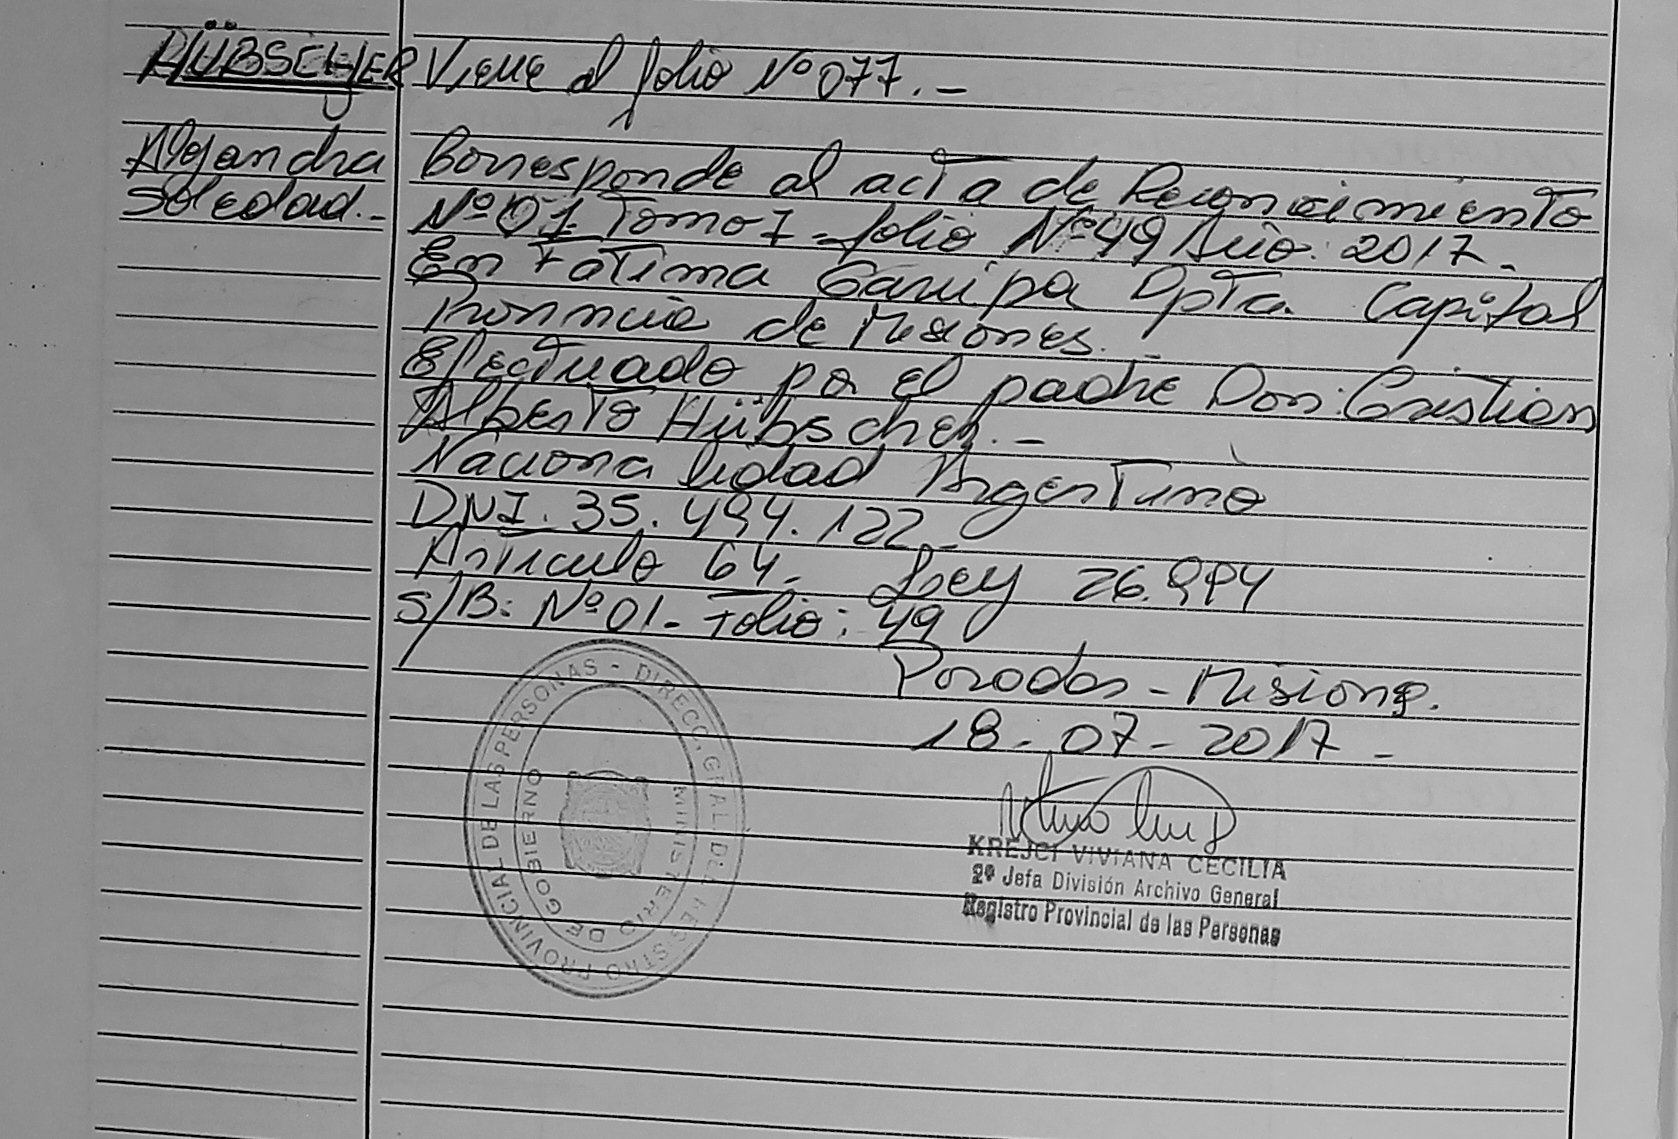 HÜBSCHER
Viene al folio Nº 077.-
Alejandra
Soledad.-
Corresponde al acta de Reconocimiento
Nº 01 Tomo I - folio Nº 49 Año: 2017.-
En Fatima Garupa Dpto. Capital
Provincia de Misiones.
Efectuado por el padre Don: Cristian
Alberto Hübscher.-
Nacionalidad Argentino
DNI. 35.494.122-
Articulo 64- Ley 26.994
S/B: Nº 01- Folio: 49
Posadas - Misiones.
18-07-2017-
KREJCI VIVIANA CECILIA
2º Jefa División Archivo General
Registro Provincial de las Personas
DIRECC. GRAL. DEL REGISTRO PROVINCIAL DE LAS PERSONAS -
MINISTERIO DE GOBIERNO